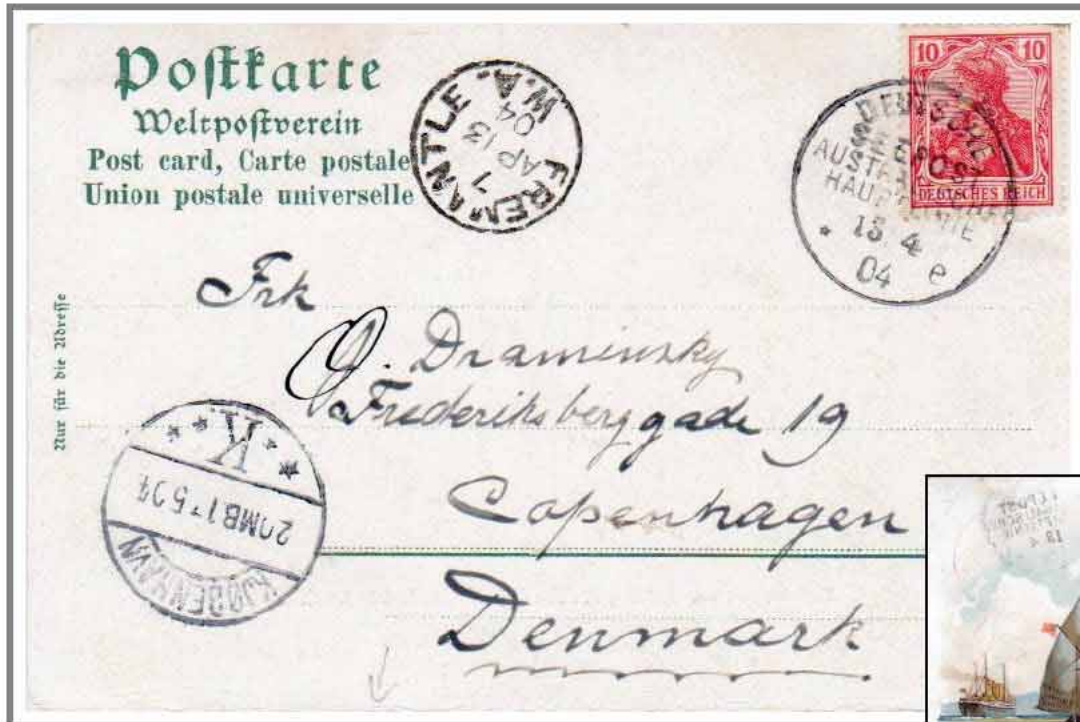 Postkarte
Weltpostverein
Post card, Carte postale
Union postale universelle
FREMANTLE W.A.
7
AP 13
04
10 10
DEUTSCHES REICH
DEUTSCHE
SEEPOST
AUSTRALISCHE
HAUPTLINIE
13. 4
04 e
Nur für die Adresse
Frk
O. Draminsky
Frederiksberggade 19
Copenhagen
Denmark
KJØBENHAVN
K.